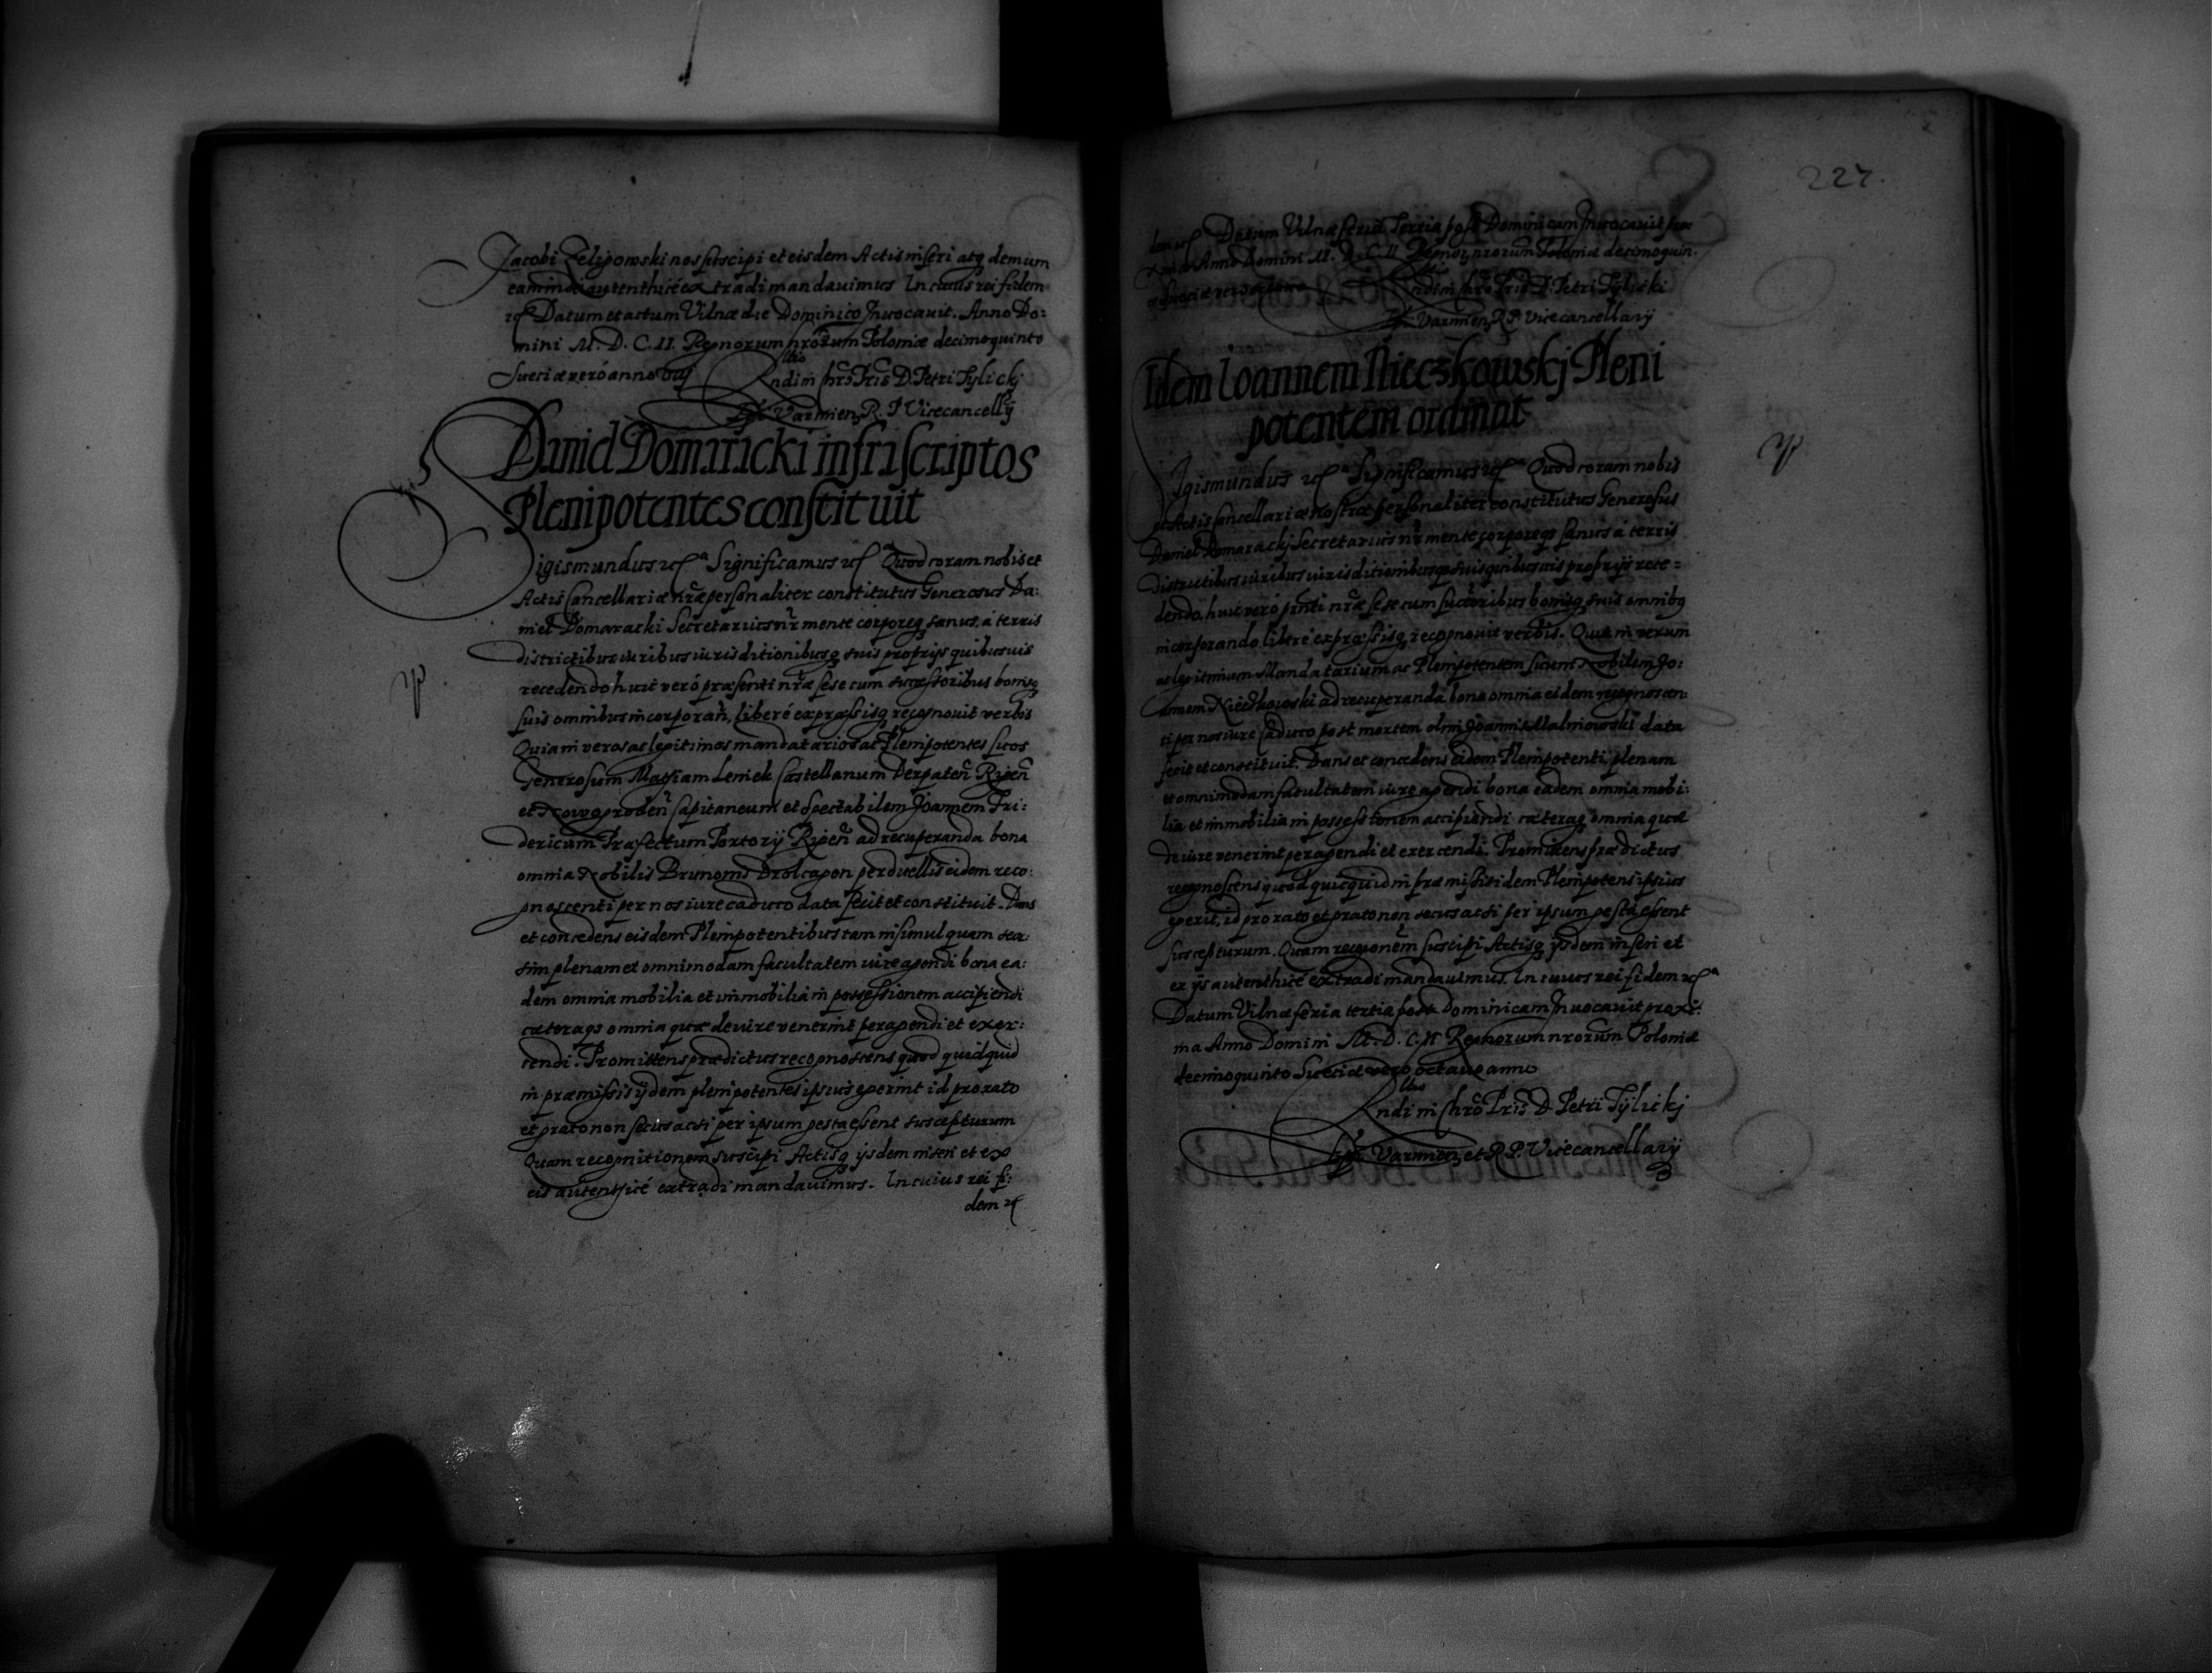 Jacobi Zelipowski nos suscipi et eisdem Actis inseri atq demum
eam inde autenthice extradi mandauimus. In cuius rei fidem
Datum et actum Vilnæ die Dominico Inuocauit. Anno Do:
mini M. D. C. II. Regnorum nrorum Poloniæ decimoquinto
Sueciæ vero anno
Rndi in Chro Pris D. Petri Tylickj
Varmien R. P Vicecancellij
Daniel Domaracki infrascriptos
Plenipotentes constituit
Sigismundus Significamus Quod coram nobis et
Actis Cancellariæ nræ personaliter constitutus Generosus Da:
niel Domaracki Secretarius nr mente corporeq sanus, à terris
districtibus iuribus iurisditionibusq suis proprijs quibusuis
recedendo huic veró præsenti nræ sese cum successoribus bonisq
suis omnibus incorporan, liberé expræssisq recognouit verbis
Quia in veros ac legitimos mandatarios ac Plenipotentes suos
Generosum Matiam Leniek Castellanum Derpaten Rigen
et Nowogroden Capitaneum et Spectabilem Joannem Fri:
dericum Præfectum Portorij Rigen ad recuperanda bona
omnia Nobilis Brunonis Drolcapon perduellis eidem reco:
gnoscenti per nos iure caduco data fecit et constituit. Dans
et concedens eisdem Plenipotentibus tam insimul quam seor:
sim plenam et omnimodam facultatem iure agendi bona ea:
dem omnia mobilia et immobilia in possessionem accipiendi
cæteraqs omnia quæ de iure venerint peragendi et exer:
cendi. Promittens prædictus recognoscens quod quidquid
in præmissis ijdem plenipotentes ipsius egerint id pro rato
et grato non secus acsi per ipsum gesta essent suscepturum
Quam recognitionem suscipi Actisq ijsdem inseri et ex
eis autenthicé extradi mandauimus. In cuius rei fi:
dem
227.
Datum Vilnæ feria Tertia post Dominicam Inuocauit pro
xima Anno Domini M. D. C. II Regnor nrorum Poloniæ decimoquin.
Rndi in Chro Pris D. Petri Tylicki
Varmien R. P. Vicecancellarij
Idem Ioannem Nieczkowskj Pleni
potentem ordinat
Sigismundus Significamus Quod coram nobis
et Actis Cancellariæ nostræ personaliter constitutus Generosus
Daniel Domarackj Secretarius nr mente corporeqs sanus à terris
districtibus iuribus iurisditionibusqs suis quibusuis proprijs rece=
dendo, huic veró pnti nræ sese cum succoribus bonisq suis omnibq
incorporando, libere expræssisq recognouit verbis. Quia in verum
ac legitimum Mandatarium ac Plenipotentem suum Nobilem Jo:
annem Nieczkowski ad recuperanda bona omnia eidem recognoscen:
ti per nos iure caduco post mortem olim Joannis Malinowski data
fecit et constituit. Dans et concedens eidem Plenipotenti plenam
et omnimodam facultatem iure agendi bona eadem omnia mobi:
lia et immobilia in possessionem accipiendi cæteraq omnia quæ
de iure venerint peragendi et exercendi. Promittens prædictus
recognoscens quod quicquid in præmissis idem Plenipotens ipsius
egerit, id pro rato et grato non secus acsi per ipsum gesta essent
suscepturum. Quam recgionem suscipi Actisq ijsdem inseri et
ex ijs autenthicé extradi mandauimus. In cuius rei fidem
Datum Vilnæ feria tertia post Dominicam Inuocauit proxi:
ma Anno Domini M. D. C. II Regnorum nrorum Poloniæ
decimoquinto Sueciæ vero octauo anno
Rndi in Chro Pris D. Petri Tylickj
Varmien et R. P. Vicecancellarij